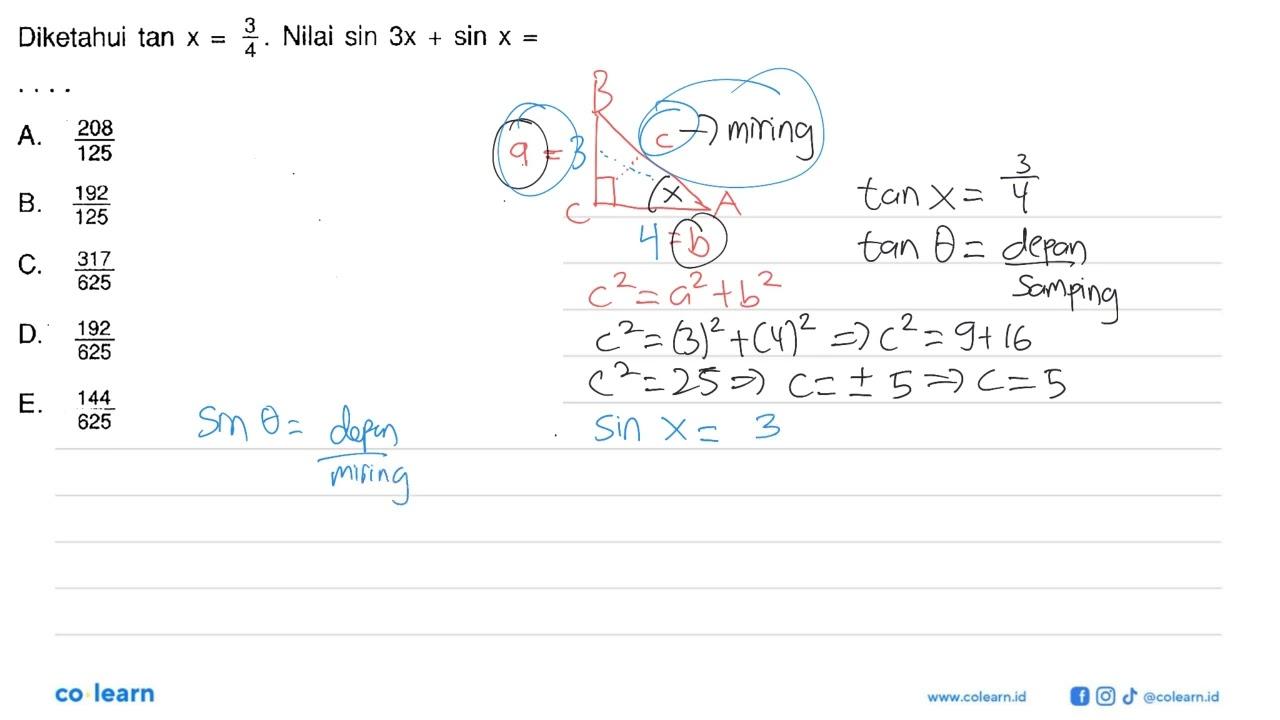 Diketahui tan x = 3/4. Nilai sin 3x + sin x =
....
A. 208/125
B. 192/125
C. 317/625
D. 192/625
E. 144/625
B
a = 3
c → miring
x
C
A
4 = b
tan x = 3/4
tan θ = depan/samping
c² = a² + b²
c² = (3)² + (4)² => c² = 9 + 16
c² = 25 => c = ± 5 => c = 5
sin θ = depan/miring
sin x = 3
co learn
www.colearn.id
@colearn.id